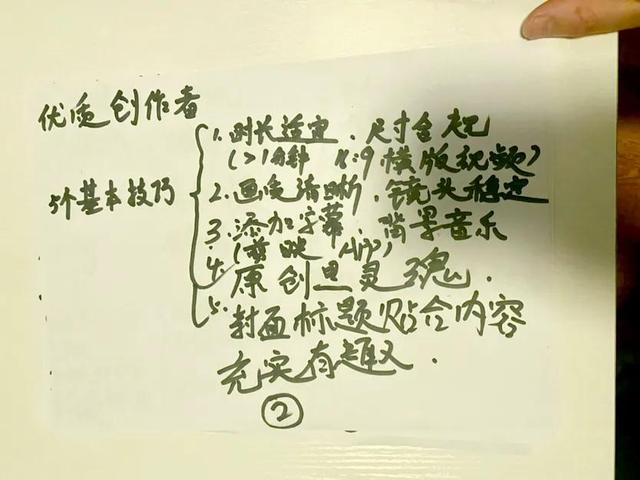 优质创作者
5个基本技巧
1. 时长适宜、尺寸合规
(>1分钟 16:9横版视频)
2. 画质清晰、镜头稳定
3. 添加字幕、背景音乐
(剪映 App)
4. 原创是灵魂.
5. 封面标题贴合内容
充实有趣.
②